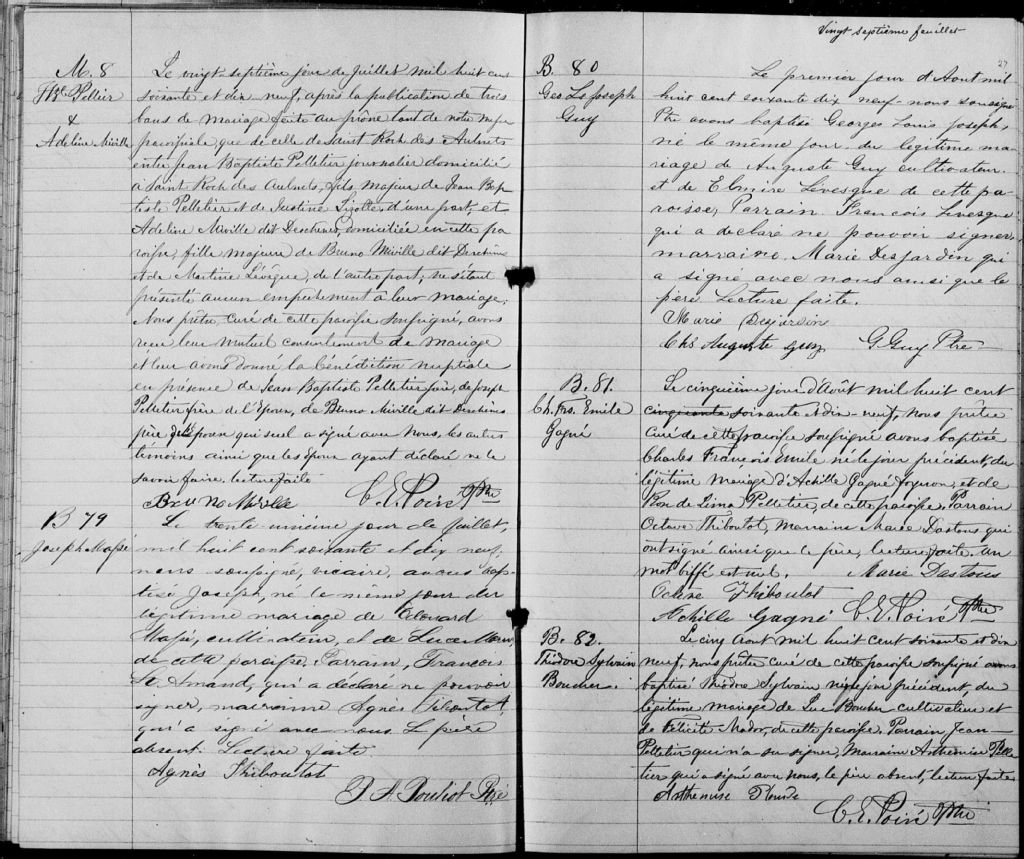 M. 8
J. Bte Pellier
&
Adeline Miville
Le vingt-septième jour de Juillet mil huit cent
soixante et dix-neuf, après la publication de trois
bans de mariage faite au prône tant de notre messe
paroissiale que de celle de Saint Roch des Aulnets
entre Jean Baptiste Pelletier journalier domicilié
à Saint Roch des Aulnets, fils majeur de Jean Bap
tiste Pelletier et de Justine Lizotte, d'une part, et
Adeline Miville dit Deschenes, domiciliée en cette pa
roisse, fille majeure de Bruno Miville dit Deschenes
et de Martine Lévêque, de l'autre part; ne s'étant
présenté aucun empêchement à leur mariage;
Nous prêtre, curé de cette paroisse soussigné, avons
reçu leur mutuel consentement de mariage
et leur avons donné la bénédiction nuptiale
en présence de Jean Baptiste Pelletier père, de Joseph
Pelletier frère de l'Epoux, de Bruno Miville dit Deschênes
père de l'Epouse qui seul a signé avec nous, les autres
témoins ainsi que les époux ayant déclaré ne le
savoir faire, lecture faite
Bruno Miville C. E. Poiré Ptre
B 79
Joseph Massé
Le trente unième jour de Juillet,
mil huit cent soixante et dix neuf,
nous soussigné, vicaire, avons bap-
tisé Joseph, né le même jour du
légitime mariage de Edouard
Massé, cultivateur, et de Luce Morin,
de cette paroisse. Parrain, François
St. Amand, qui a déclaré ne pouvoir
signer, marraine Agnès Thiboutot
qui a signé avec nous. Le père
absent. Lecture faite
Agnès Thiboutot
J. A. Pouliot Ptre
Vingt septième feuillet
27
B. 80
Geo Ls Joseph
Guy
Le premier jour d'Aout mil
huit cent soixante dix neuf nous soussigné
Ptre avons baptisé Georges Louis Joseph,
né le même jour du légitime ma-
riage de Auguste Guy cultivateur
et de Elmire Lévesque de cette pa-
roisse, Parrain François Levesque
qui a déclaré ne pouvoir signer,
marraine, Marie Desjardin qui
a signé avec nous ainsi que le
père Lecture faite.
Marie Desjardin
Chs Auguste Guy G. Guy Ptre
B. 81.
Ch. Frs. Emile
Gagné
Le cinquième jour d'Août mil huit cent
cinquante soixante et dix-neuf, Nous prêtre
curé de cette paroisse soussigné avons baptisé
Charles François Emile né le jour précédent, du
légitime mariage d'Achille Gagné forgeron, et de
Rose de Lima Pelletier, de cette paroisse, Parrain
Octave Thiboutot, Marraine Marie Dastous, qui
ont signé ainsi que le père, lecture faite. Un
mot biffé est nul. Marie Dastous
Octave Thiboutot
Achille Gagné C. E. Poiré Ptre
B. 82.
Théodore Sylvain
Boucher
Le cinq Aout mil huit cent soixante et dix
neuf, nous prêtre curé de cette paroisse soussigné avons
baptisé Théodore Sylvain né le jour précédent, du
légitime mariage de Luc Boucher cultivateur et
de Félicité Nador, de cette paroisse, Parrain Jean
Pelletier qui n'a su signer, Marraine Arthémise Pelle
tier qui a signé avec nous, le père absent, lecture faite
Arthemise
C. E. Poiré Ptre